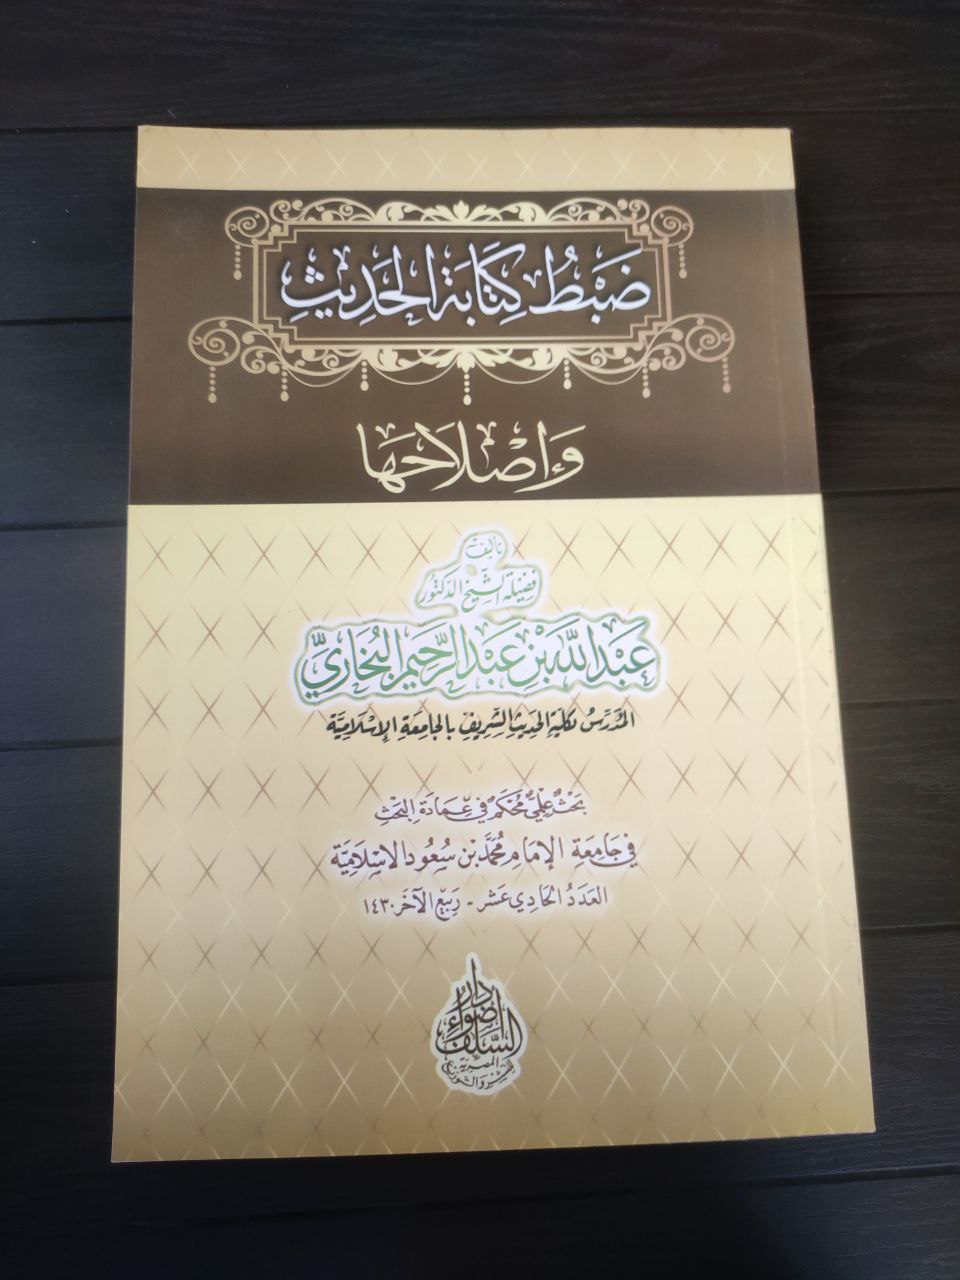 ضَبْطُ كِتَابَةِ الحَدِيثِ
وَإِصْلَاحَهَا
تأليف
فضيلة الشيخ الدكتور
عَبْدِ اللَّهِ بْنِ عَبْدِ الرَّحِيمِ البُخَارِيِّ
المُدَرِّسُ بكلية الحَدِيثِ الشَّرِيفِ بالجَامِعَةِ الإِسْلَامِيَّة
بَحْثٌ عِلْمِيٌّ مُحَكَّمٌ فِي عِمَادَةِ البَحْثِ
فِي جَامِعَةِ الإِمَامِ مُحَمَّد بْنِ سُعُود الإِسْلَامِيَّة
العَدَدُ الحَادِي عَشَر - رَبِيعُ الآخَر ١٤٣٠
دار
أضواء
السلف
المصرية
للنشر والتوزيع